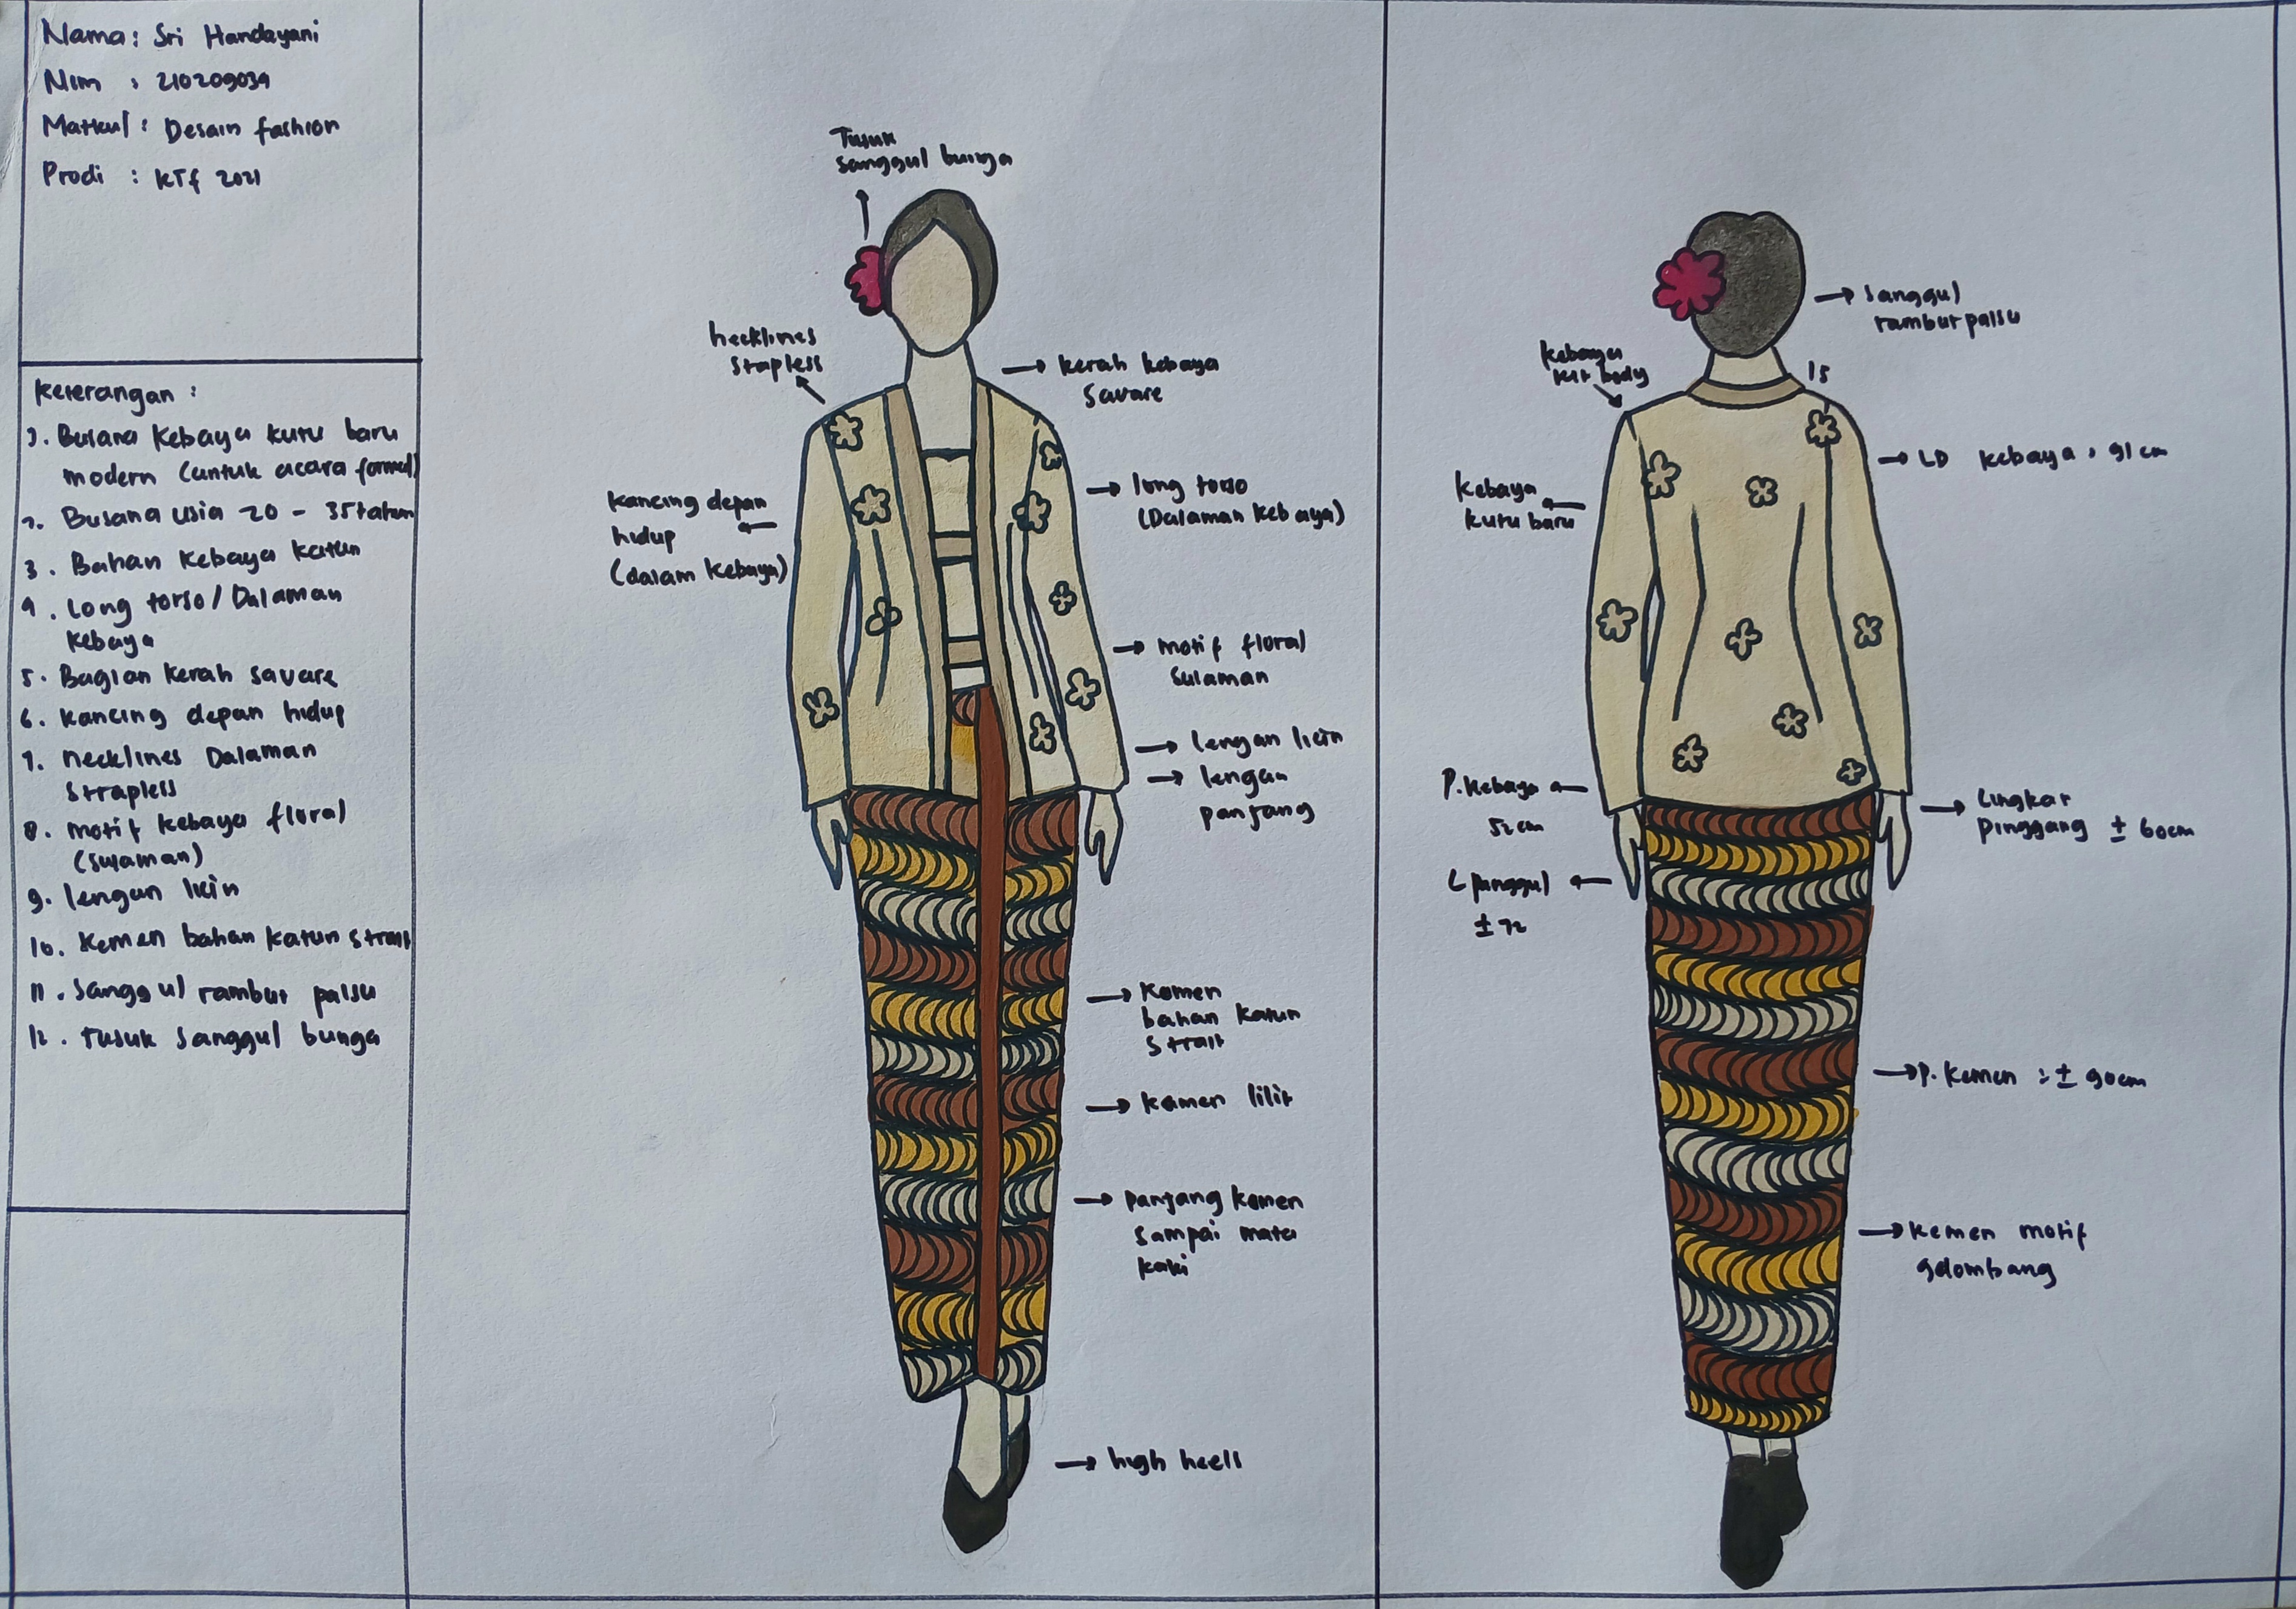 Nama : Sri Handayani
Nim : 210209039
Matkul : Desain fashion
Prodi : KTf 2021
Keterangan :
1. Busana Kebaya kutu baru
modern (untuk acara formal)
2. Busana usia 20 - 35 tahun
3. Bahan Kebaya Katun
4. Long torso / Dalaman
Kebaya
5. Bagian Kerah savare
6. Kancing depan hidup
7. necklines Dalaman
strapless
8. motif kebaya floral
(sulaman)
9. lengan licin
10. Kemen bahan katun strait
11. Sanggul rambut palsu
12. Tusuk Sanggul bunga
Tusuk
sanggul bunga
necklines
strapless
kerah kebaya
Savare
Kancing depan
hidup
(dalam kebaya)
long torso
(Dalaman Kebaya)
motif floral
sulaman
lengan licin
lengan
panjang
Komen
bahan katun
strait
kamen lilit
panjang kamen
sampai mata
kaki
high heell
sanggul
rambut palsu
kebaya
body
15
LD kebaya : 91 cm
Kebaya
kutu baru
P. Kebaya
52 cm
Lingkar
pinggang ± 60cm
L panggul
± 72
P. Kemen : ± 90cm
kemen motif
gelombang